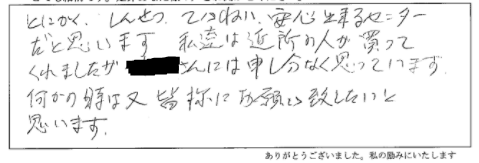 とにかく、しんせつ、ていねい、安心出来るセンター
だと思います 私達は近所の人が買って
くれましたが さんには申し分なく思っています。
何かの時は又 皆様にお願い致したいと
思います。
ありがとうございました。私の励みにいたします